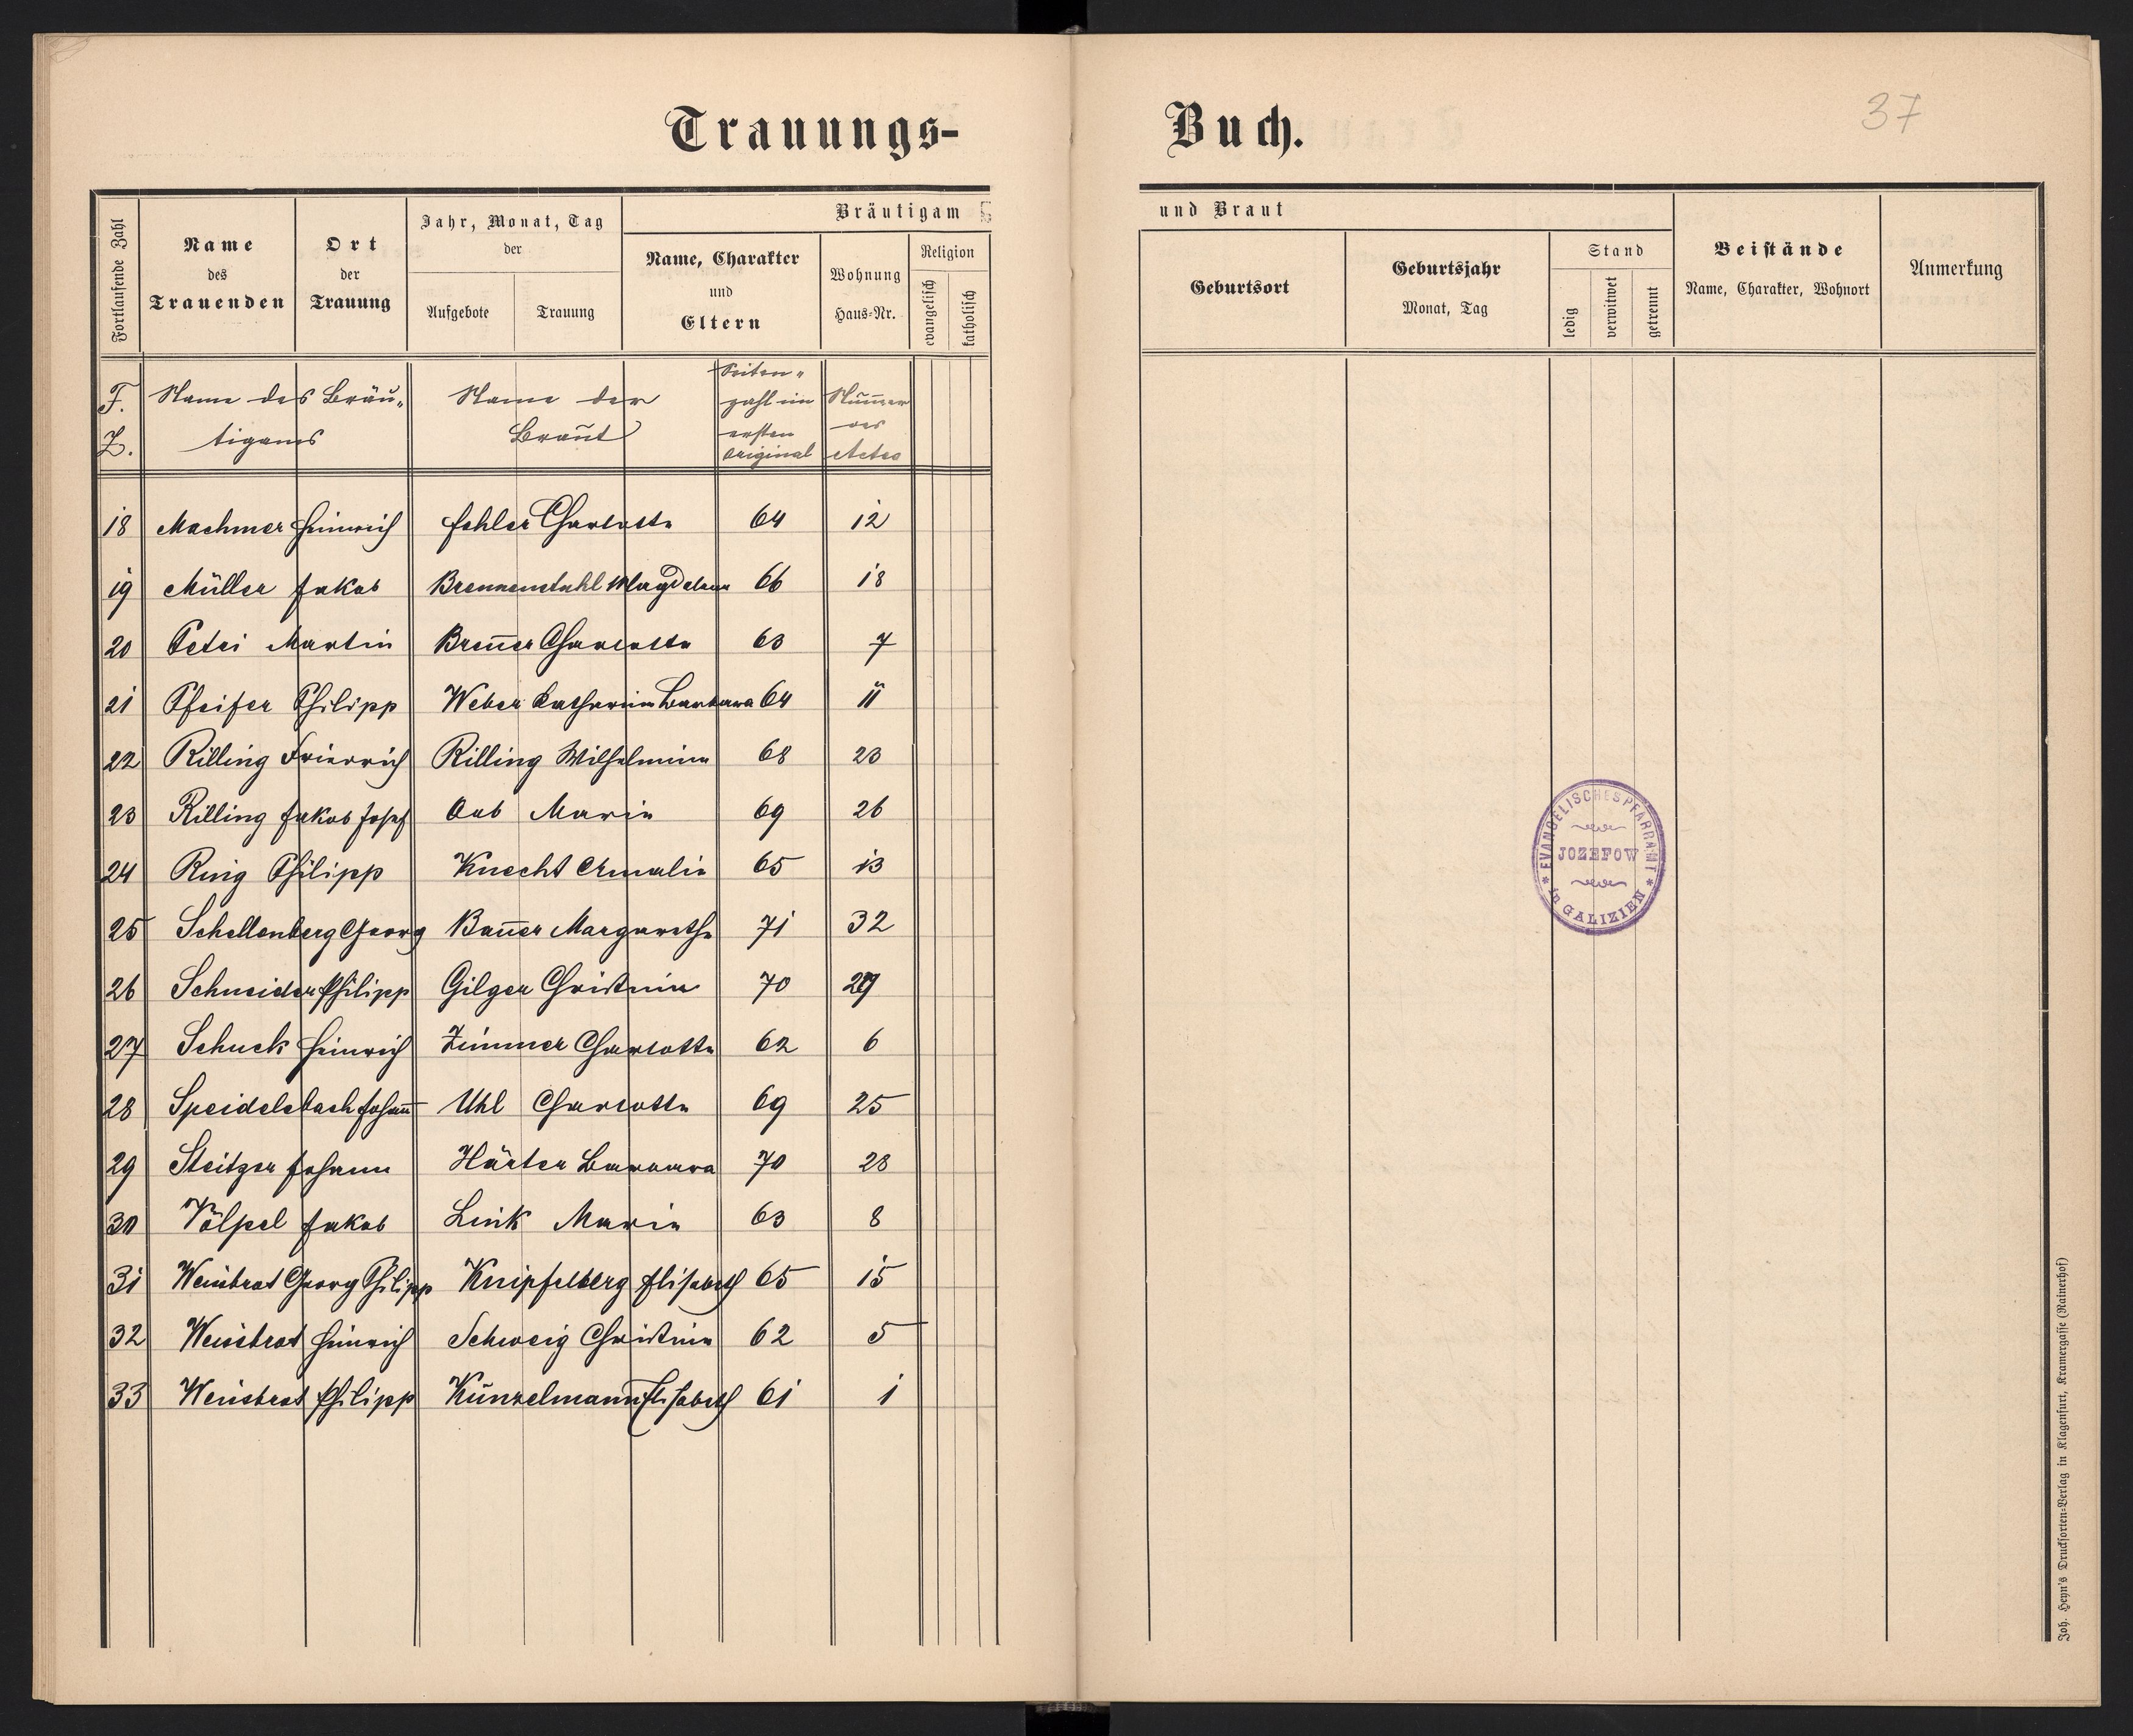 Trauungs-
Buch.
37
Fortlaufende Zahl
Name
des
Trauenden
Ort
der
Trauung
Jahr, Monat, Tag
der
Aufgebote
Trauung
Bräutigam
Name, Charakter
und
Eltern
Wohnung
Haus-Nr.
Religion
evangelisch
katholisch
F. Z.
Name des Bräu-
tigams
Name der
Braut
Seiten-
zahl im
ersten
Original
Nummer
des
Actes
18 Machmer Heinrich Fehler Charlotte 64 12
19 Müller Jakob Brennenstuhl Magdalena 66 18
20 Petri Martin Breñer Charlotte 63 7
21 Pfeifer Philipp Weber Katharina Barbara 64 11
22 Rilling Friedrich Rilling Wilhelmine 68 23
23 Rilling Jakob Josef Aab Marie 69 26
24 Ring Philipp Knecht Amalie 65 13
25 Schellenberg Georg Bauer Margarethe 71 32
26 Schneider Philipp Gilger Christine 70 29
27 Schuck Heinrich Zimmer Charlotte 62 6
28 Speidelsbach Johañ Uhl Charlotte 69 25
29 Steitzer Johann Härter Barbara 70 28
30 Völpel Jakob Link Marie 63 8
31 Weisbrot Georg Philipp Knipfelberg Elisabeth 65 15
32 Weisbrot Heinrich Schweig Christine 62 5
33 Weisbrot Philipp Künzelmann Elisabeth 61 1
und Braut
Geburtsort
Geburtsjahr
Monat, Tag
Stand
ledig
verwitwet
getrennt
Beistände
Name, Charakter, Wohnort
Anmerkung
EVANGELISCHES PFARRAMT
JOZEFOW
in GALIZIEN
Joh. Heyn's Drucksorten-Verlag in Klagenfurt, Kramergasse (Rainerhof)